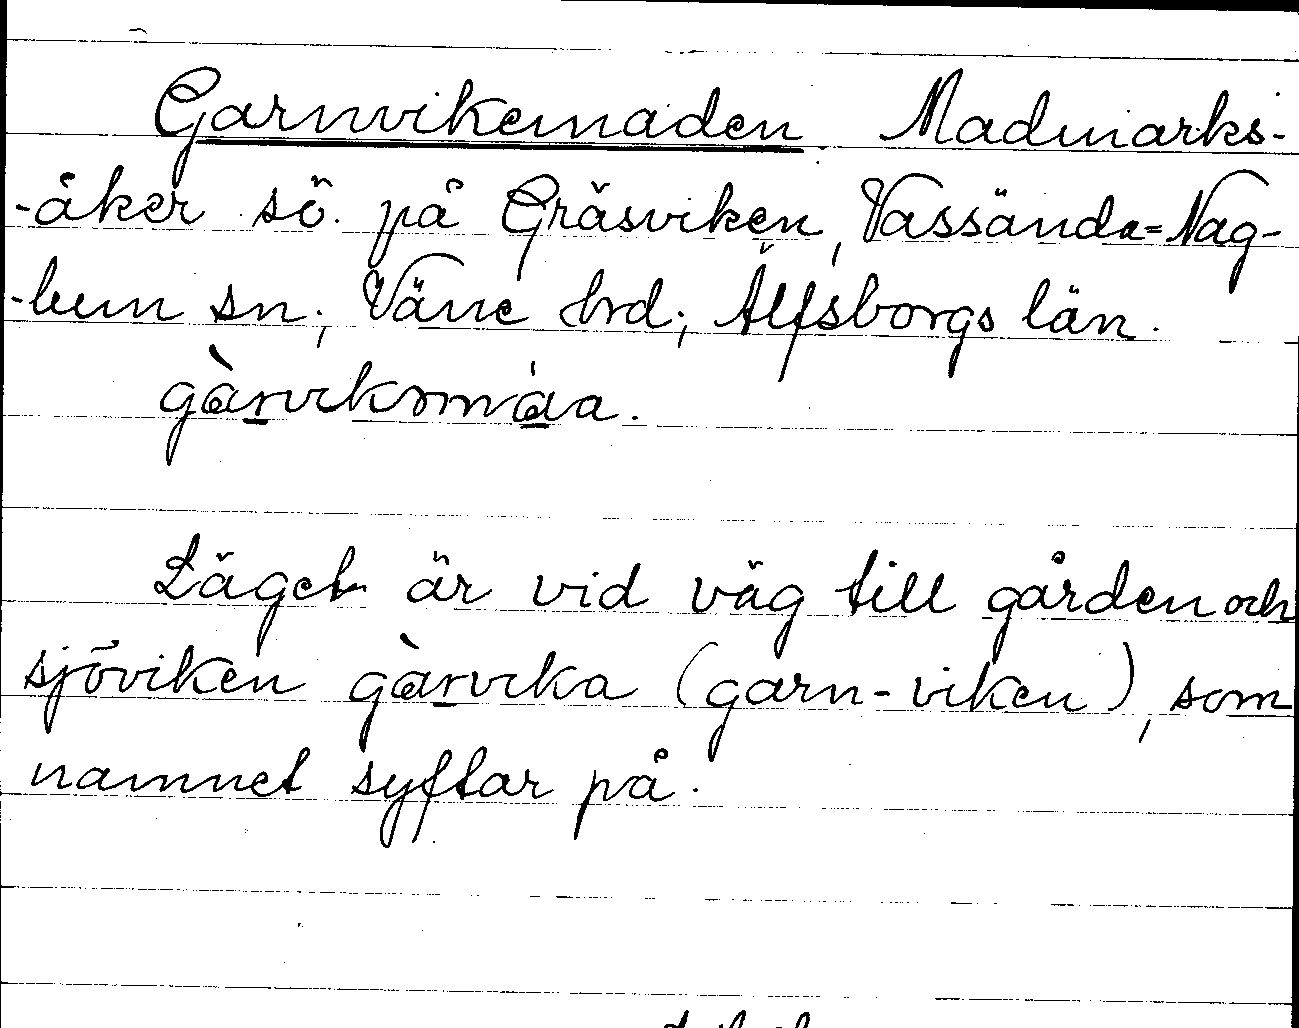 Garnvikemaden. Madmarks-
-åker sö. på Gräsviken, Vassända-Nag-
-lum sn; Väne hrd; Älfsborgs län.
gàrvikəmàa.
Läget är vid väg till gården och
sjöviken gàrvika (garn-viken), som
namnet syftar på.